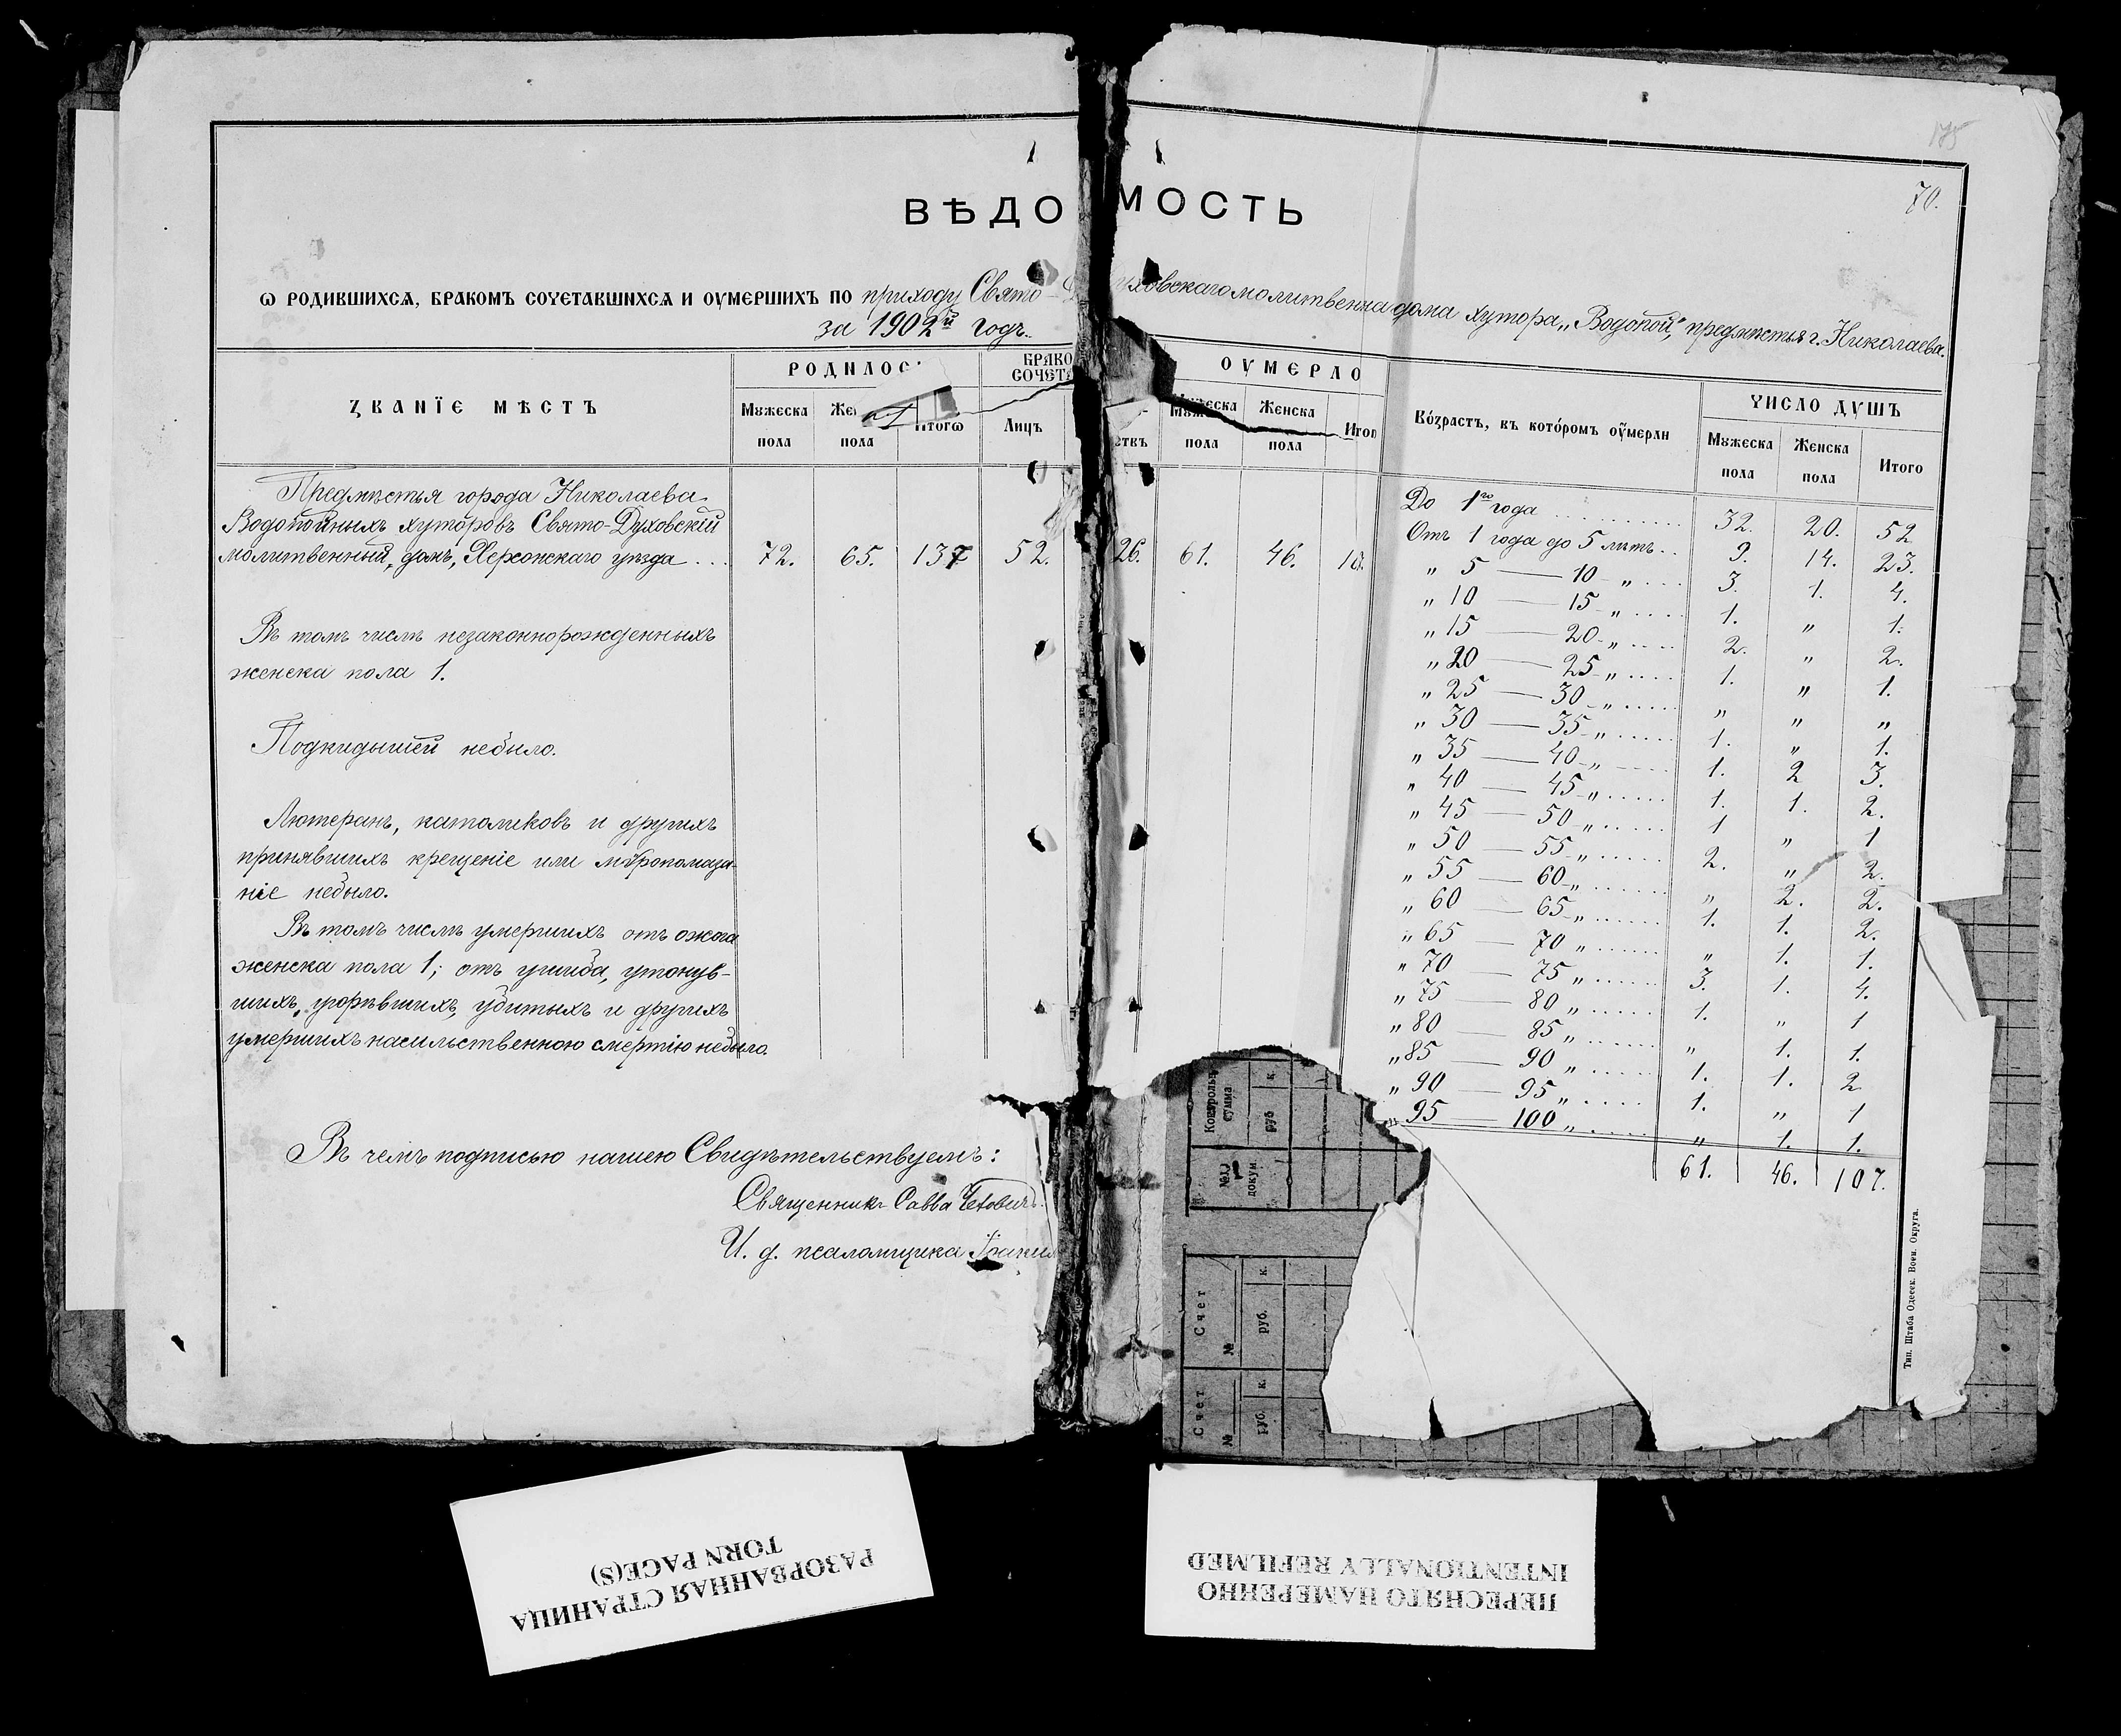 175
70.
ВѢДОМОСТЬ
Ѡ РОДИВШИХСѦ, БРАКОМЪ СОЧЕТАВШИХСѦ И ОУМЕРШИХЪ ПО приходу Свято-Духовскаго молитвеннаго дома хутора „Водопой“, предмѣстья г. Николаева.
за 1902й годъ.
ЗВАНЇЕ МѢСТЪ
РОДИЛОС
БРАКО
СОЧЕТА
ОУМЕРЛО
Мужеска пола
Же пола
Итогѡ
Лицъ
ствъ
Мужеска пола
Женска пола
Итог
Во́зрастъ, въ кото́ромъ оу҆мерли
ЧИСЛО ДУШЪ
Мужеска пола
Женска пола
Итого
Предмѣстья города Николаева
Водопойныхъ хуторовъ Свято-Духовскій
молитвенный домъ, Херсонскаго уѣзда . . . 72. 65. 137 52. 26. 61. 46. 10
Въ томъ числѣ незаконнорожденныхъ
женска пола 1.
Подкидышей небыло.
Лютеранъ, католиковъ и другихъ
принявшихъ крещеніе или мѵропомаза-
ніе небыло.
Въ томъ числѣ умершихъ отъ ожога
женска пола 1; отъ ушиба, утонув-
шихъ, угорѣвшихъ, убитыхъ и другихъ
умершихъ насильственною смертію небыло.
Въ чемъ подписью нашею Свидѣтельствуемъ:
Священникъ Савва
И. д. псаломщика Іоаким
До 1го года . . . . . 32. 20. 52
Отъ 1 года до 5 лѣтъ . . 9. 14. 23.
„ 5 — 10 „ . . . 3. 1. 4.
„ 10 — 15 „ . . . 1. „ 1.
„ 15 — 20 „ . . . 2. „ 2.
„ 20 — 25 „ . . . 1. „ 1.
„ 25 — 30 „ . . . „ „ „
„ 30 — 35 „ . . . 1. „ 1.
„ 35 — 40 „ . . . 1. 2 3.
„ 40 — 45 „ . . . 1. 1. 2.
„ 45 — 50 „ . . . 1 „ 1
„ 50 — 55 „ . . . 2. „ 2.
„ 55 — 60 „ . . . „ 2. 2.
„ 60 — 65 „ . . . 1. 1. 2.
„ 65 — 70 „ . . . „ 1. 1.
„ 70 — 75 „ . . . 3. 1. 4.
„ 75 — 80 „ . . . 1. „ 1
„ 80 — 85 „ . . . „ 1. 1.
„ 85 — 90 „ . . . 1. 1. 2
„ 90 — 95 „ . . . 1. „ 1
„ 95 — 100 „ . . . „ 1. 1.
61. 46. 107.
Контрольн сумма
руб к.
№№ докум.
Счет №
руб. к.
Счет №
руб. к.
Тип. Штаба Одесск. Воен. Округа.
РАЗОРВАННАЯ СТРАНИЦА
TORN PAGE(S)
ПЕРЕСНЯТО НАМЕРЕННО
INTENTIONALLY REFILMED